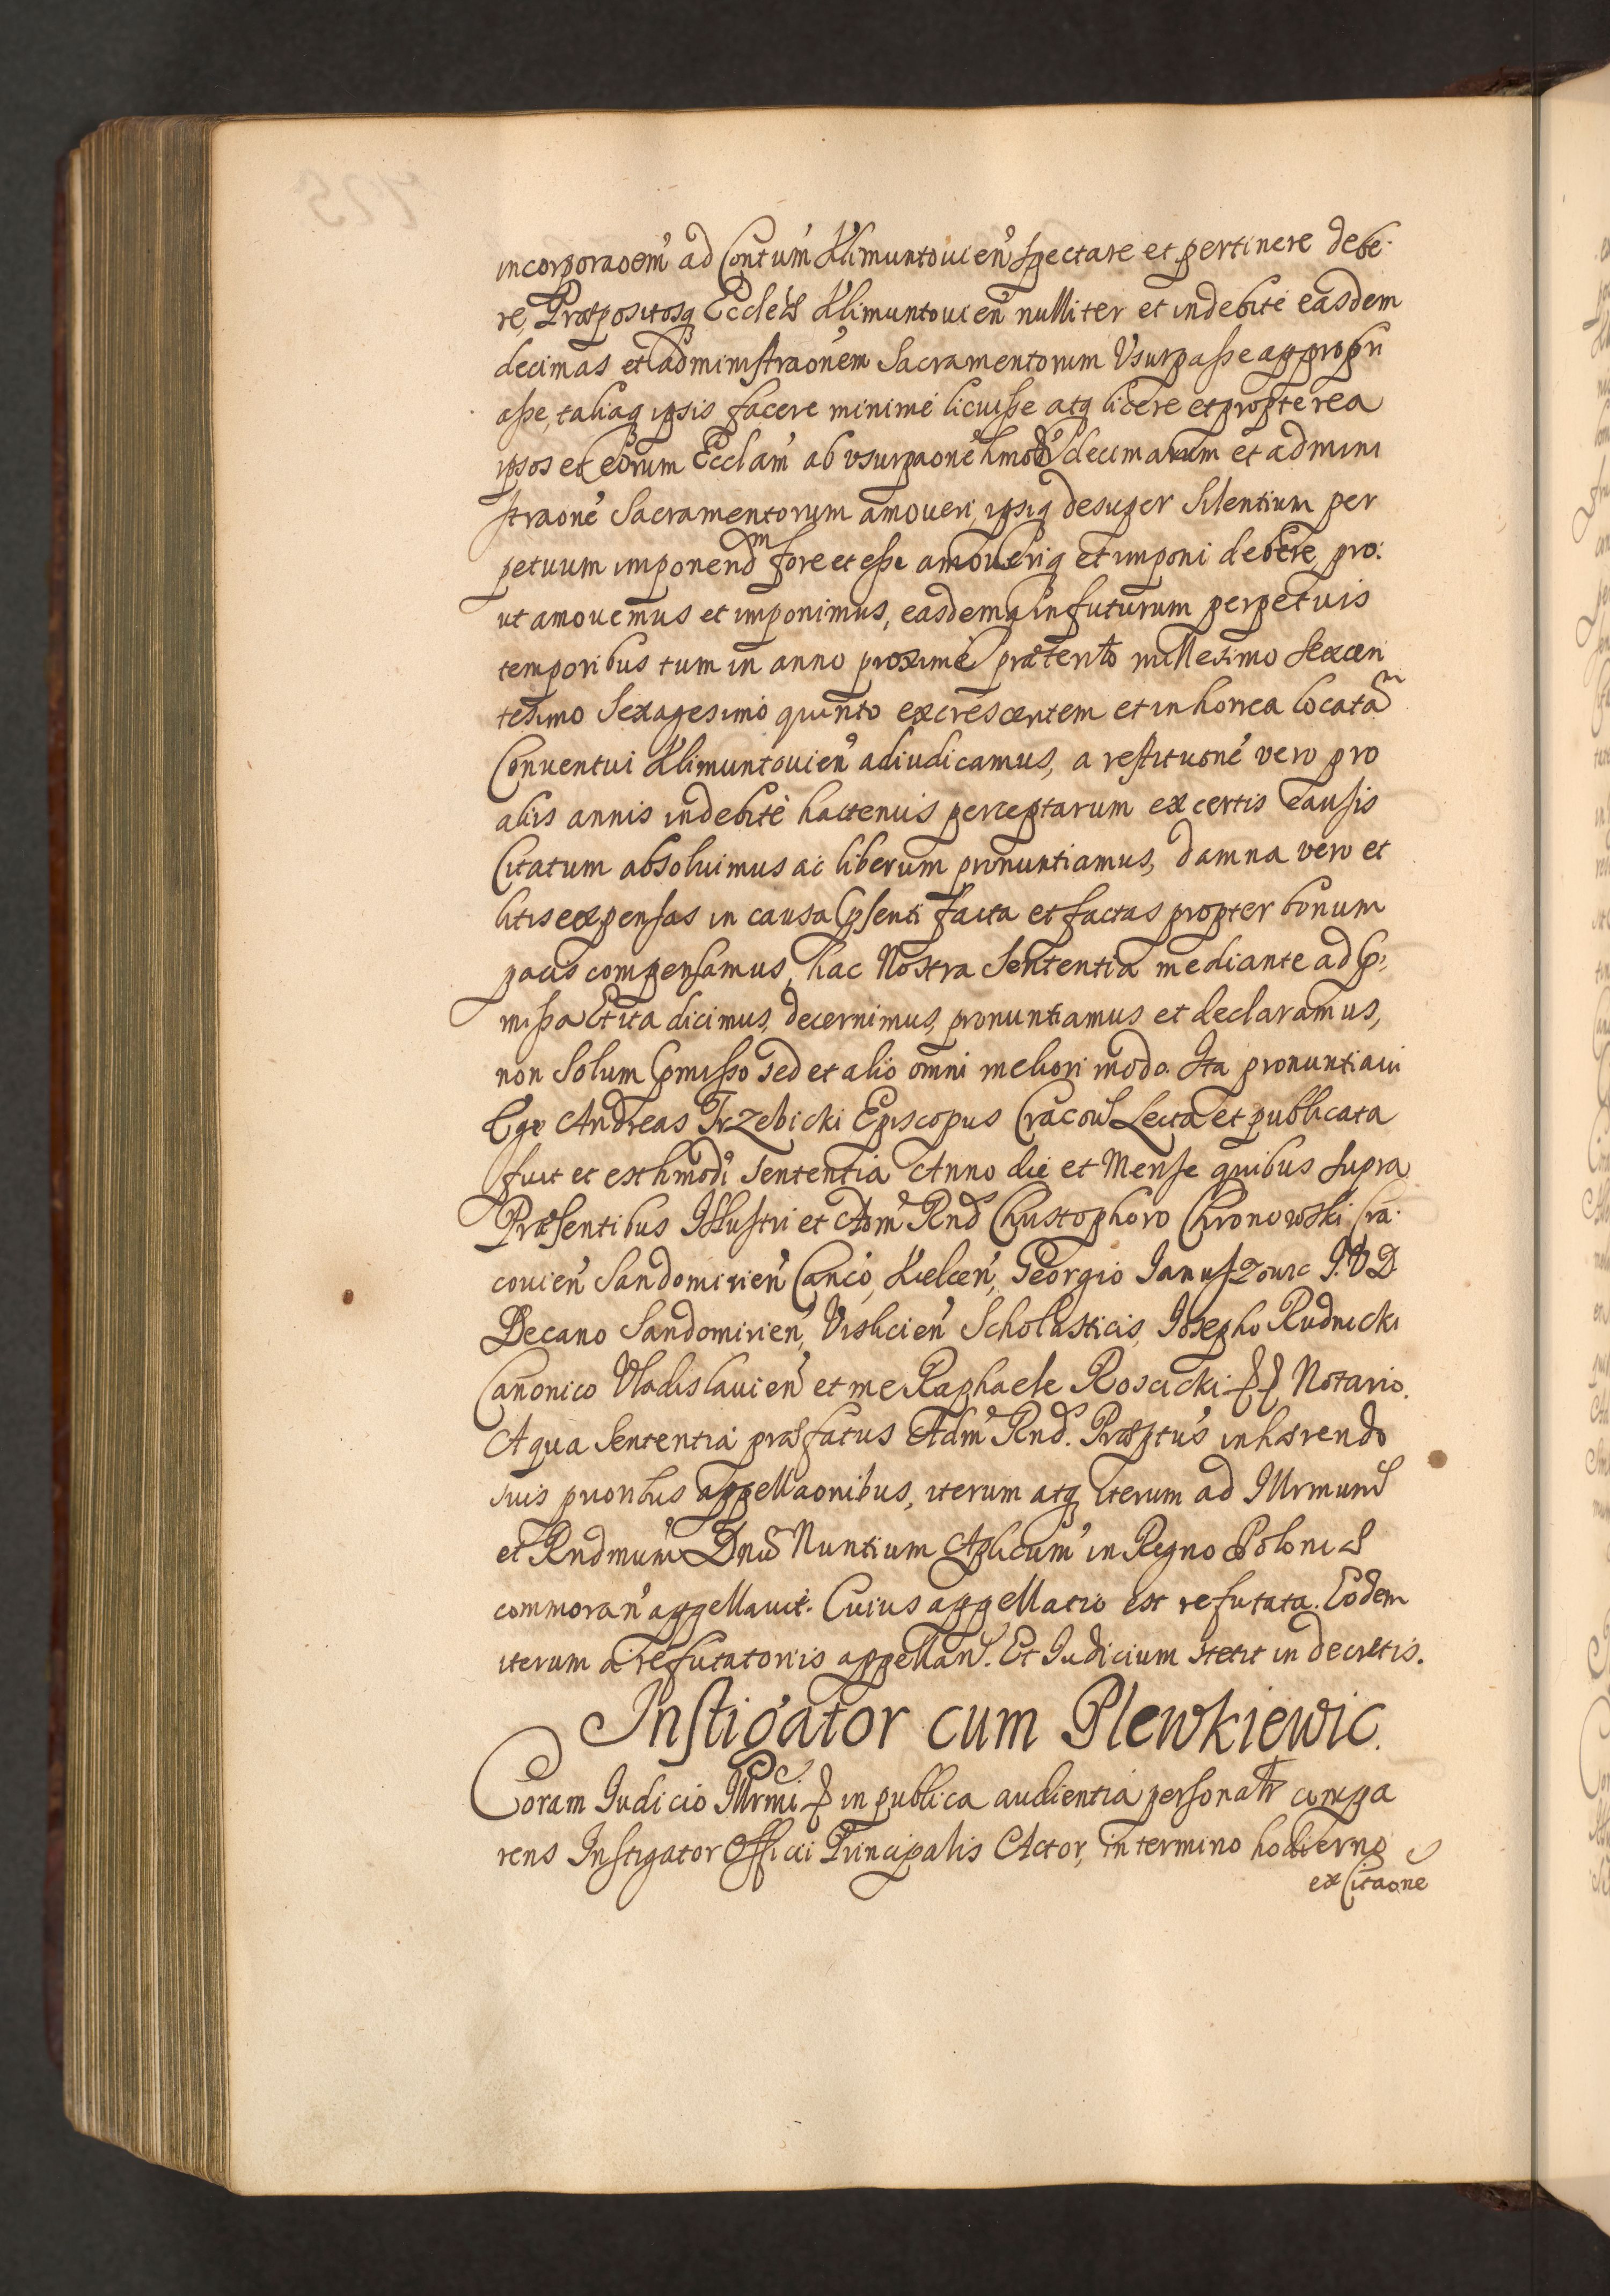 incorporaoem̃ ad Contum̃ Klimuntouien̄ spectare et pertinere debe-
re, Præpositosq̃ Ecclæ Klimuntouien̄ nulliter et indebite easdem
decimas et administraonem Sacramentorum Vsurpasse appropri
asse, taliaq̃ ipsis facere minimé licuisse atq̃ licere et propterea
ipsos et eorum Ecclam̃ ab vsurpaone hmodi decimarum et admini
straone Sacramentorum amoueri, ipsiq̃ desuper Silentium per
petuum imponendm fore et esse amoueriq̃ et imponi debere, pro:
ut amouemus et imponimus, easdemq̃ in futurum perpetuis
temporibus tum in anno proximé præterito millesimo Sexcen
tesimo Sexagesimo quinto excrescentem et in horrea locatam
Conuentui Klimuntouien̄ adiudicamus, a restitutione vero pro
aliis annis indebitè hactenus perceptarum ex certis causis
Citatum absoluimus ac liberum pronuntiamus, damna vero et
litis expensas in causa p̃senti facta et factas propter bonum
pacis compensamus, hac Nostra Sententia mediante ad p̃-
missa Et ita dicimus, decernimus, pronuntiamus et declaramus,
non Solum p̃misso sed et alio omni meliori modo. Ita pronuntiaui
Ego Andreas Trzebicki Episcopus Cracou Lecta et publicata
fuit et est hmodi Sententia Anno die et Mense quibus supra
Præsentibus Illustri et Adm̃ Rnd Christophoro Chronowski Cra-
couien̄ Sandomirien̄ Canco, Kielcen̄, Georgio Januszowic I. V D
Decano Sandomirien̄, Vislicien̄ Scholasticis, Iosepho Rudnicki
Canonico Vladislauien̄ et me Raphaele Roscicki Notario.
A qua Sententia præfatus Adm̃ Rnd. Præptus inhærendo
suis prioribus appellaonibus, iterum atq̃ iterum ad Illrmum
et Rndmum Dnu Nuntium Aplicum̃ in Regno Poloniæ
commoran̄ appellauit. Cuius appellatio est refutata. Eodem
iterum a refutatoriis appellan̄. Et Iudicium stetit in decretis.
Instigator cum Plewkiewic.
Coram Iudicio Illrmi in publica audientia personatr compa
rens Instigator Officii Principalis Actor, in termino hodierno
ex Citaone